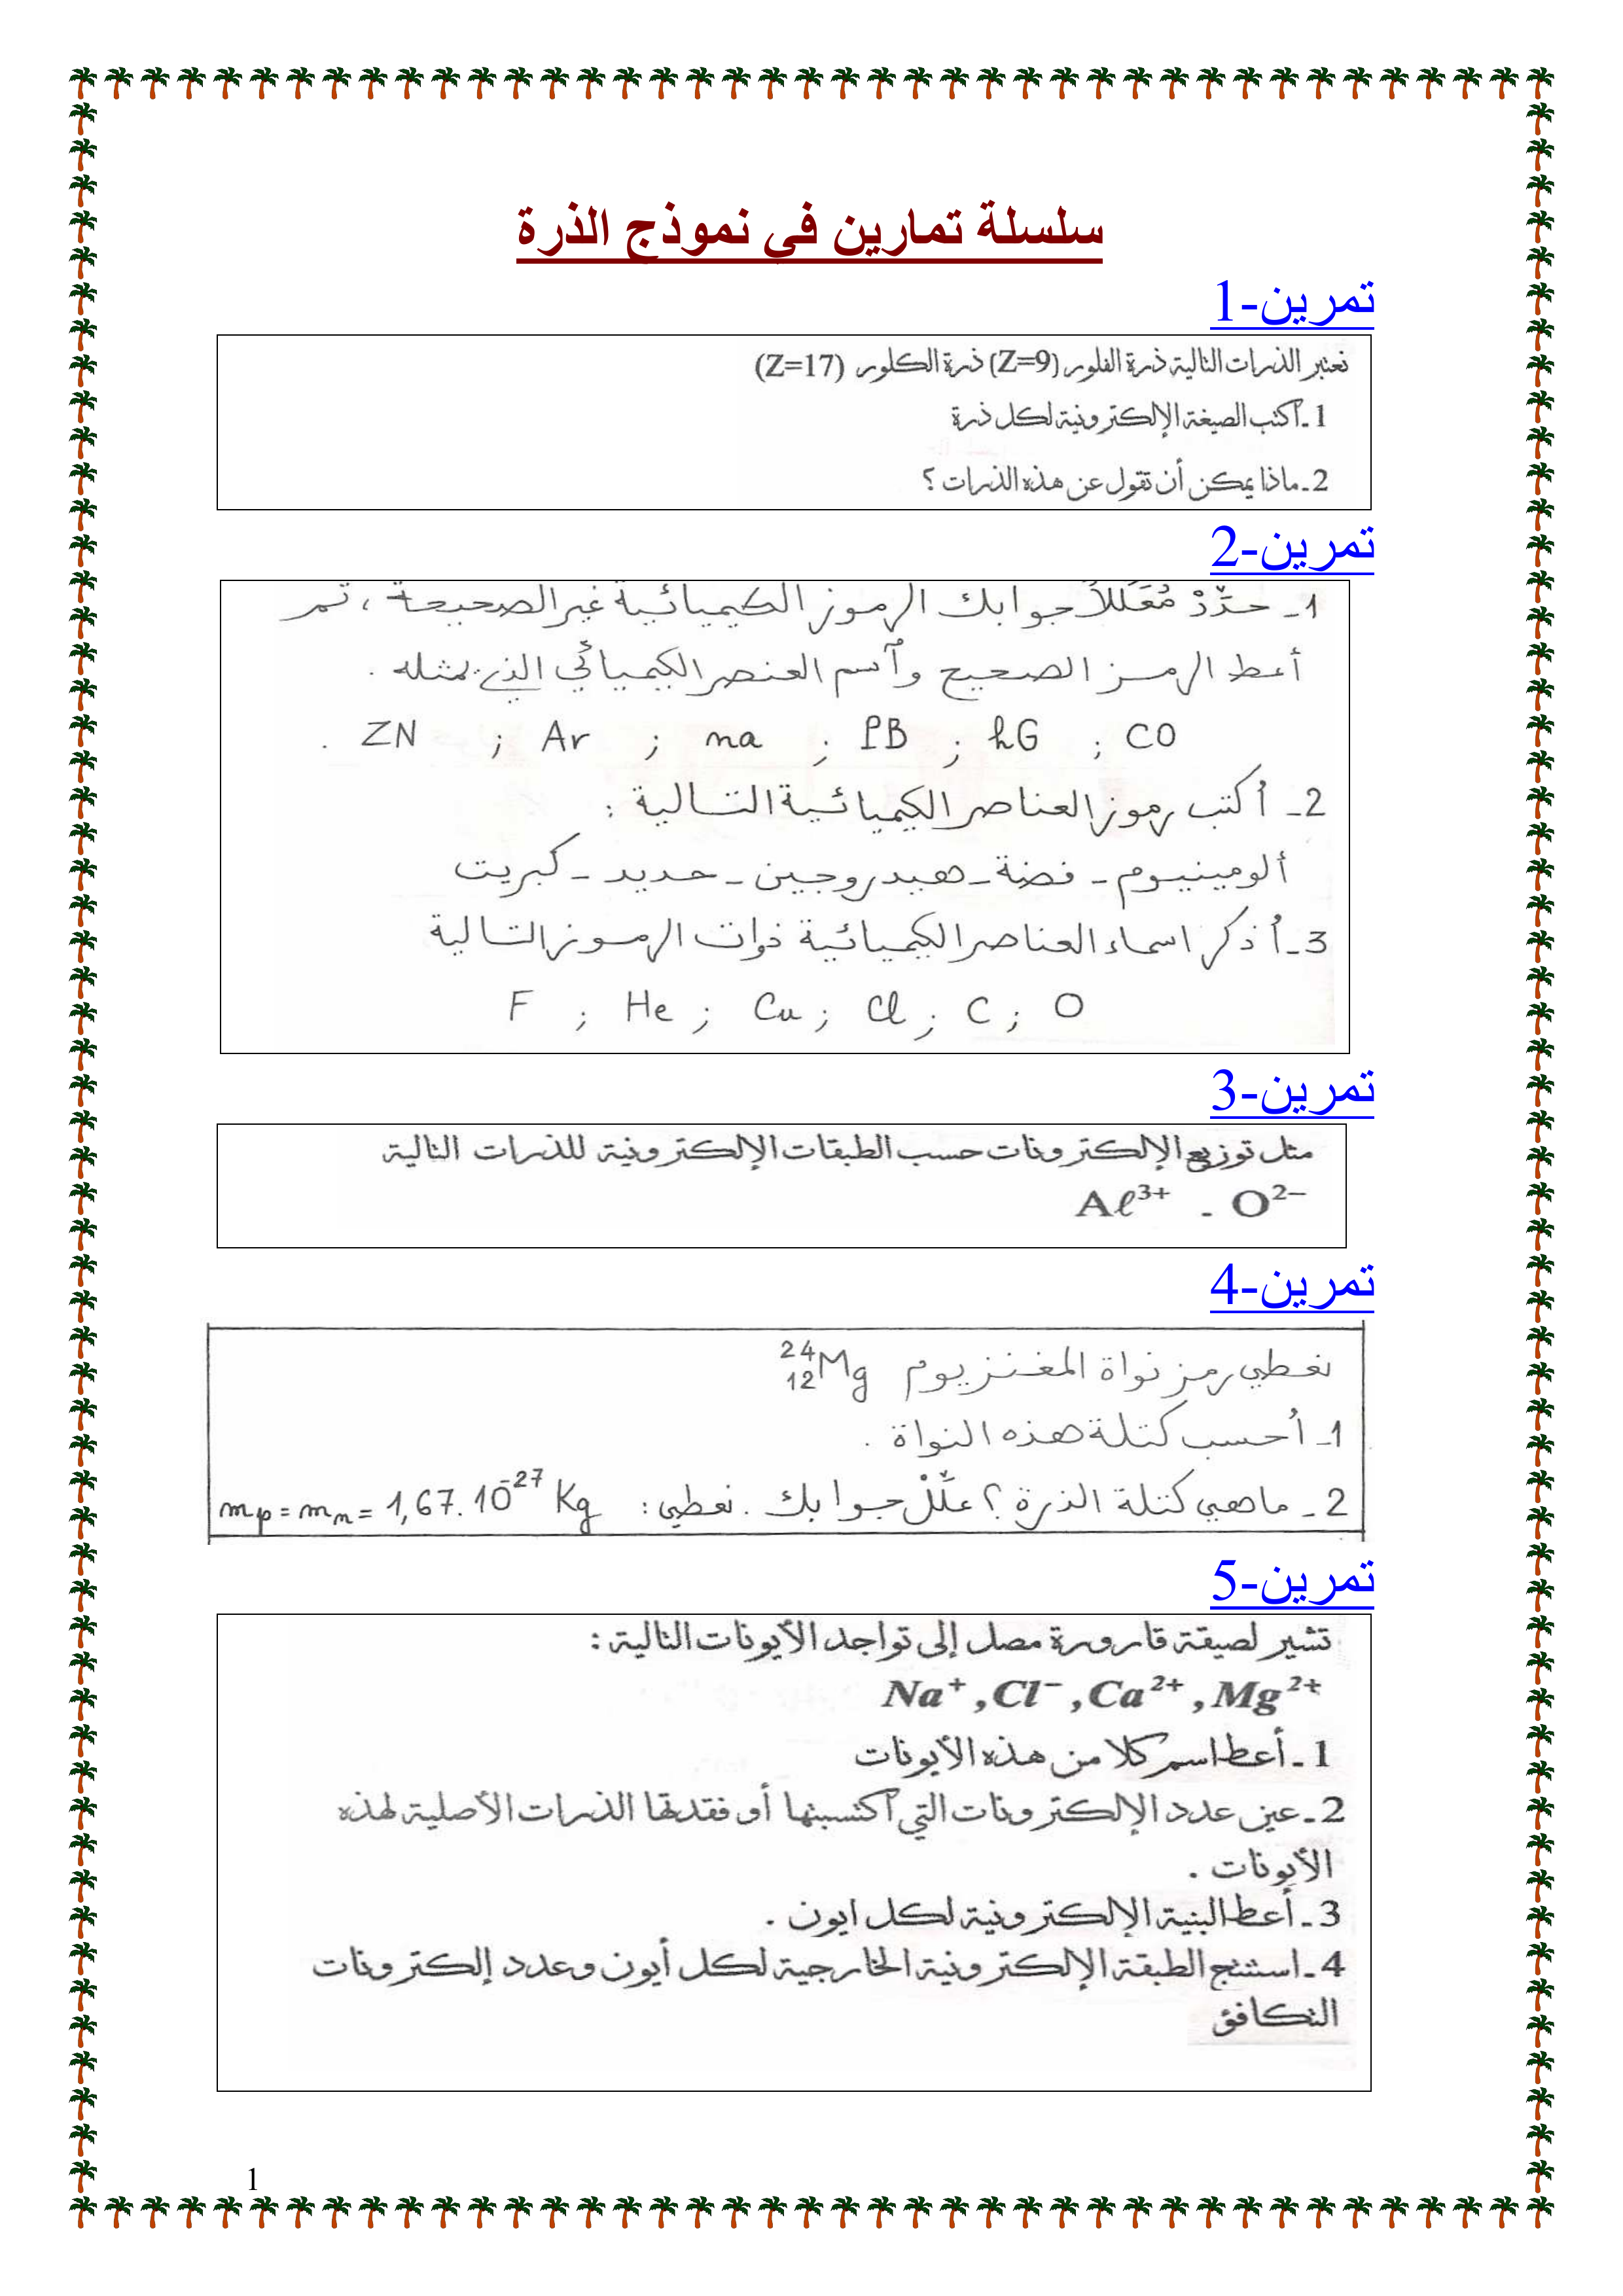 سلسلة تمارين في نموذج الذرة
تمرين-1
نعتبر الذرات التالية ذرة الفلور (Z=9) ذرة الكلور (Z=17)
1 ـ أكتب الصيغة الإلكترونية لكل ذرة
2 ـ ماذا يمكن أن تقول عن هذه الذرات ؟
تمرين-2
1 ـ حدّدْ مُعَلّلاً جوابك الرموز الكيميائية غير الصحيحة ، ثم
أعط الرمز الصحيح وآسم العنصر الكيميائي الذي يمثله .
CO ; hG ; PB ; na ; Ar ; ZN .
2 ـ أُكتب رموز العناصر الكيميائية التالية :
ألومينيوم ـ فضة ـ هيدروجين ـ حديد ـ كبريت
3 ـ أُذكر اسماء العناصر الكيميائية ذوات الرموز التالية
O ; C ; Cl ; Cu ; He ; F
تمرين-3
مثل توزيع الإلكترونات حسب الطبقات الإلكترونية للذرات التالية
Aℓ³⁺ - O²⁻
تمرين-4
نعطي رمز نواة المغنزيوم ²⁴₁₂Mg
1 ـ أُحسب كتلة هذه النواة .
2 ـ ماهي كتلة الذرة ؟ علّلْ جوابك . نعطي : mp = mn = 1,67.10⁻²⁷ Kg
تمرين-5
تشير لصيقة قارورة مصل إلى تواجد الأيونات التالية :
Na⁺ , Cl⁻ , Ca²⁺ , Mg²⁺
1 ـ أعط اسم كلا من هذه الأيونات
2 ـ عين عدد الإلكترونات التي أكتسبتها أو فقدتها الذرات الأصلية لهذه
الأيونات .
3 ـ أعط البنية الإلكترونية لكل ايون .
4 ـ استنتج الطبقة الإلكترونية الخارجية لكل أيون وعدد إلكترونات
التكافؤ
1